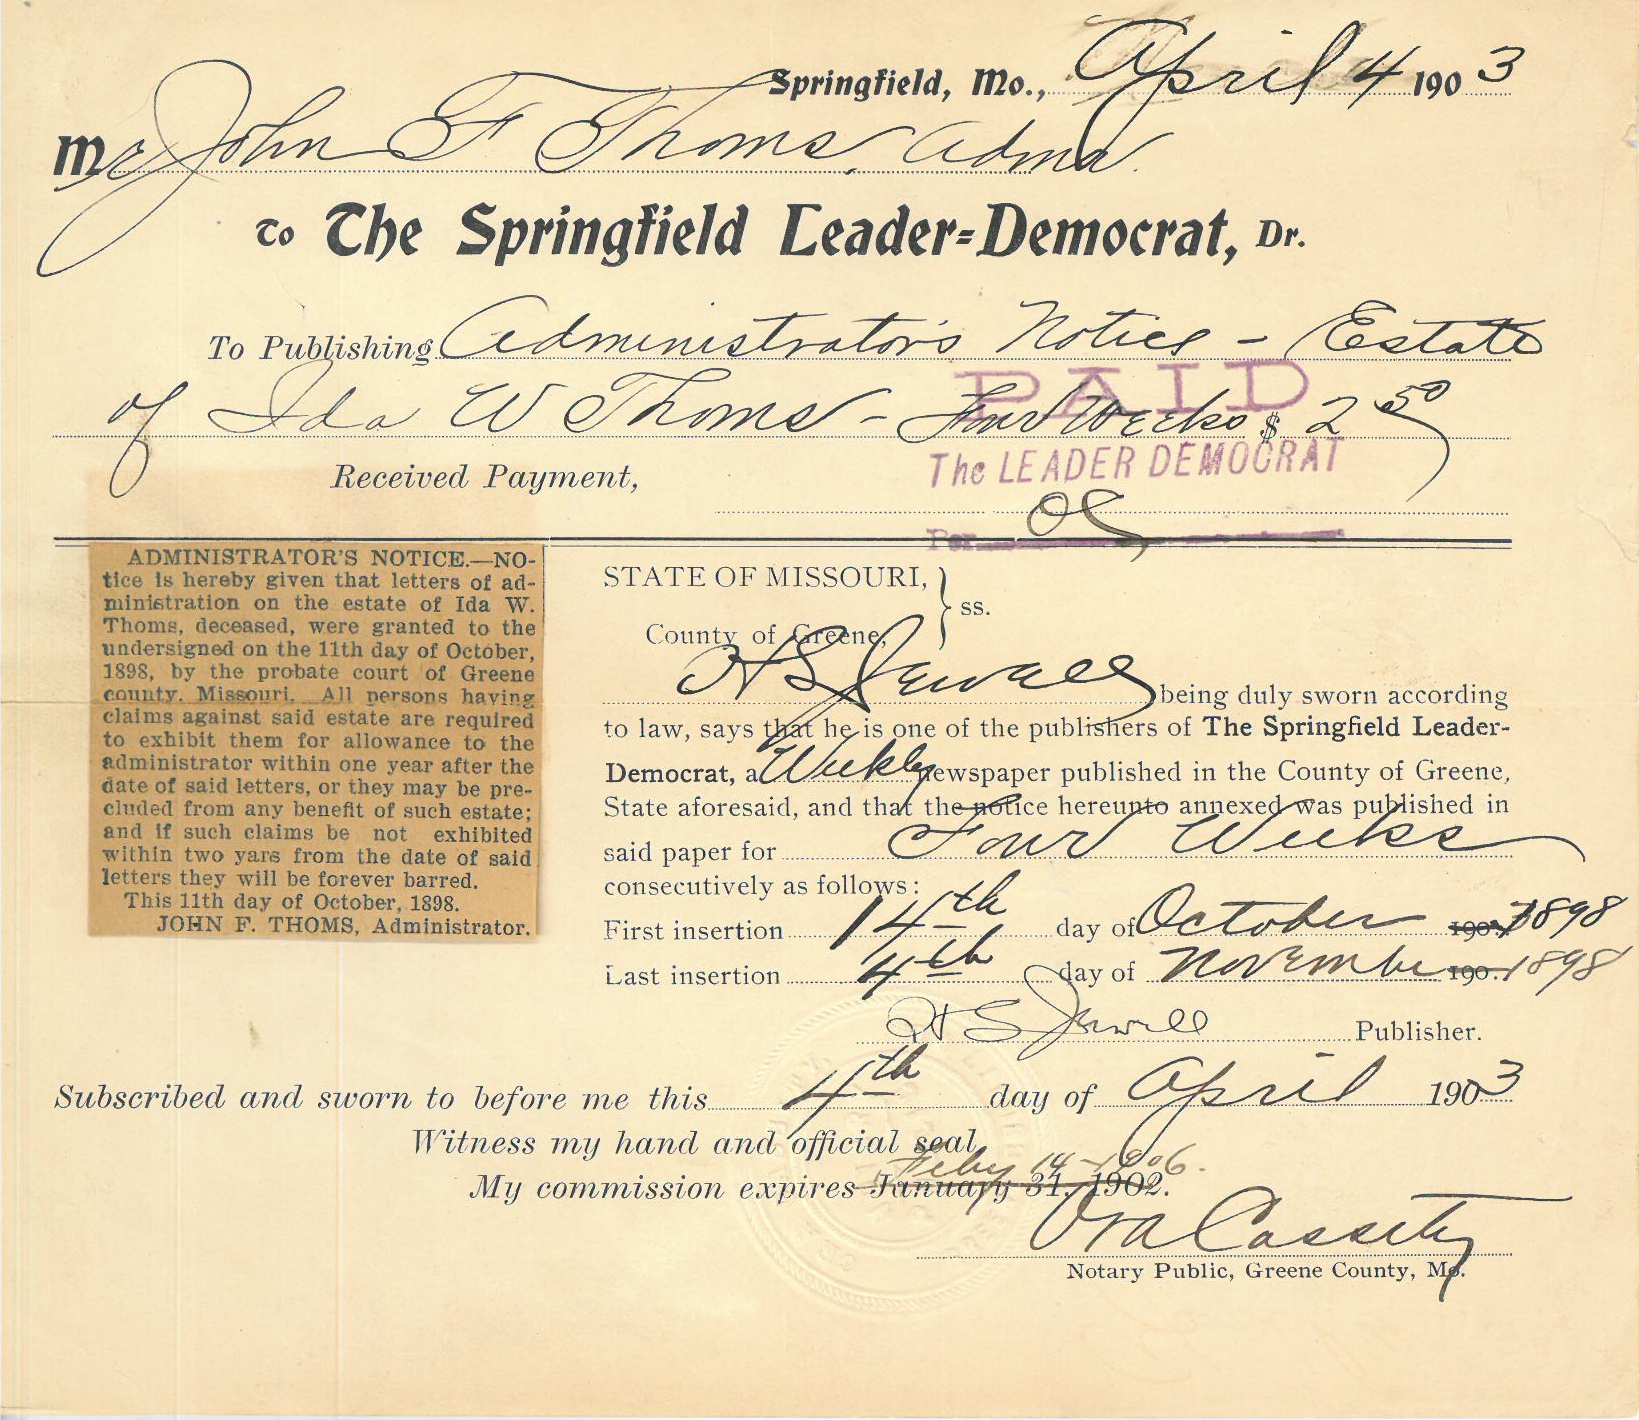 Springfield, Mo., April 4 1903
Mr John F Thoms, Admr
To The Springfield Leader=Democrat, Dr.
To Publishing Administrator's Notice - Estate
of Ida W Thoms - Four Weeks $ 2 50
PAID
The LEADER DEMOCRAT
Received Payment,
Per
ADMINISTRATOR'S NOTICE.—NO-
tice is hereby given that letters of ad-
ministration on the estate of Ida W.
Thoms, deceased, were granted to the
undersigned on the 11th day of October,
1898, by the probate court of Greene
county, Missouri. All persons having
claims against said estate are required
to exhibit them for allowance to the
administrator within one year after the
date of said letters, or they may be pre-
cluded from any benefit of such estate;
and if such claims be not exhibited
within two yars from the date of said
letters they will be forever barred.
This 11th day of October, 1898.
JOHN F. THOMS, Administrator.
STATE OF MISSOURI, } ss.
County of Greene,
H S Jewell being duly sworn according
to law, says that he is one of the publishers of The Springfield Leader-
Democrat, a Weekly newspaper published in the County of Greene,
State aforesaid, and that the notice hereunto annexed was published in
said paper for Four Weeks
consecutively as follows:
First insertion 14th day of October 190 1898
Last insertion 4th day of November 190 1898
H S Jewell Publisher.
Subscribed and sworn to before me this 4th day of April 1903
Witness my hand and official seal
Feby 14-1906.
My commission expires January 31, 1902.
Ora Cassety
Notary Public, Greene County, Mo.